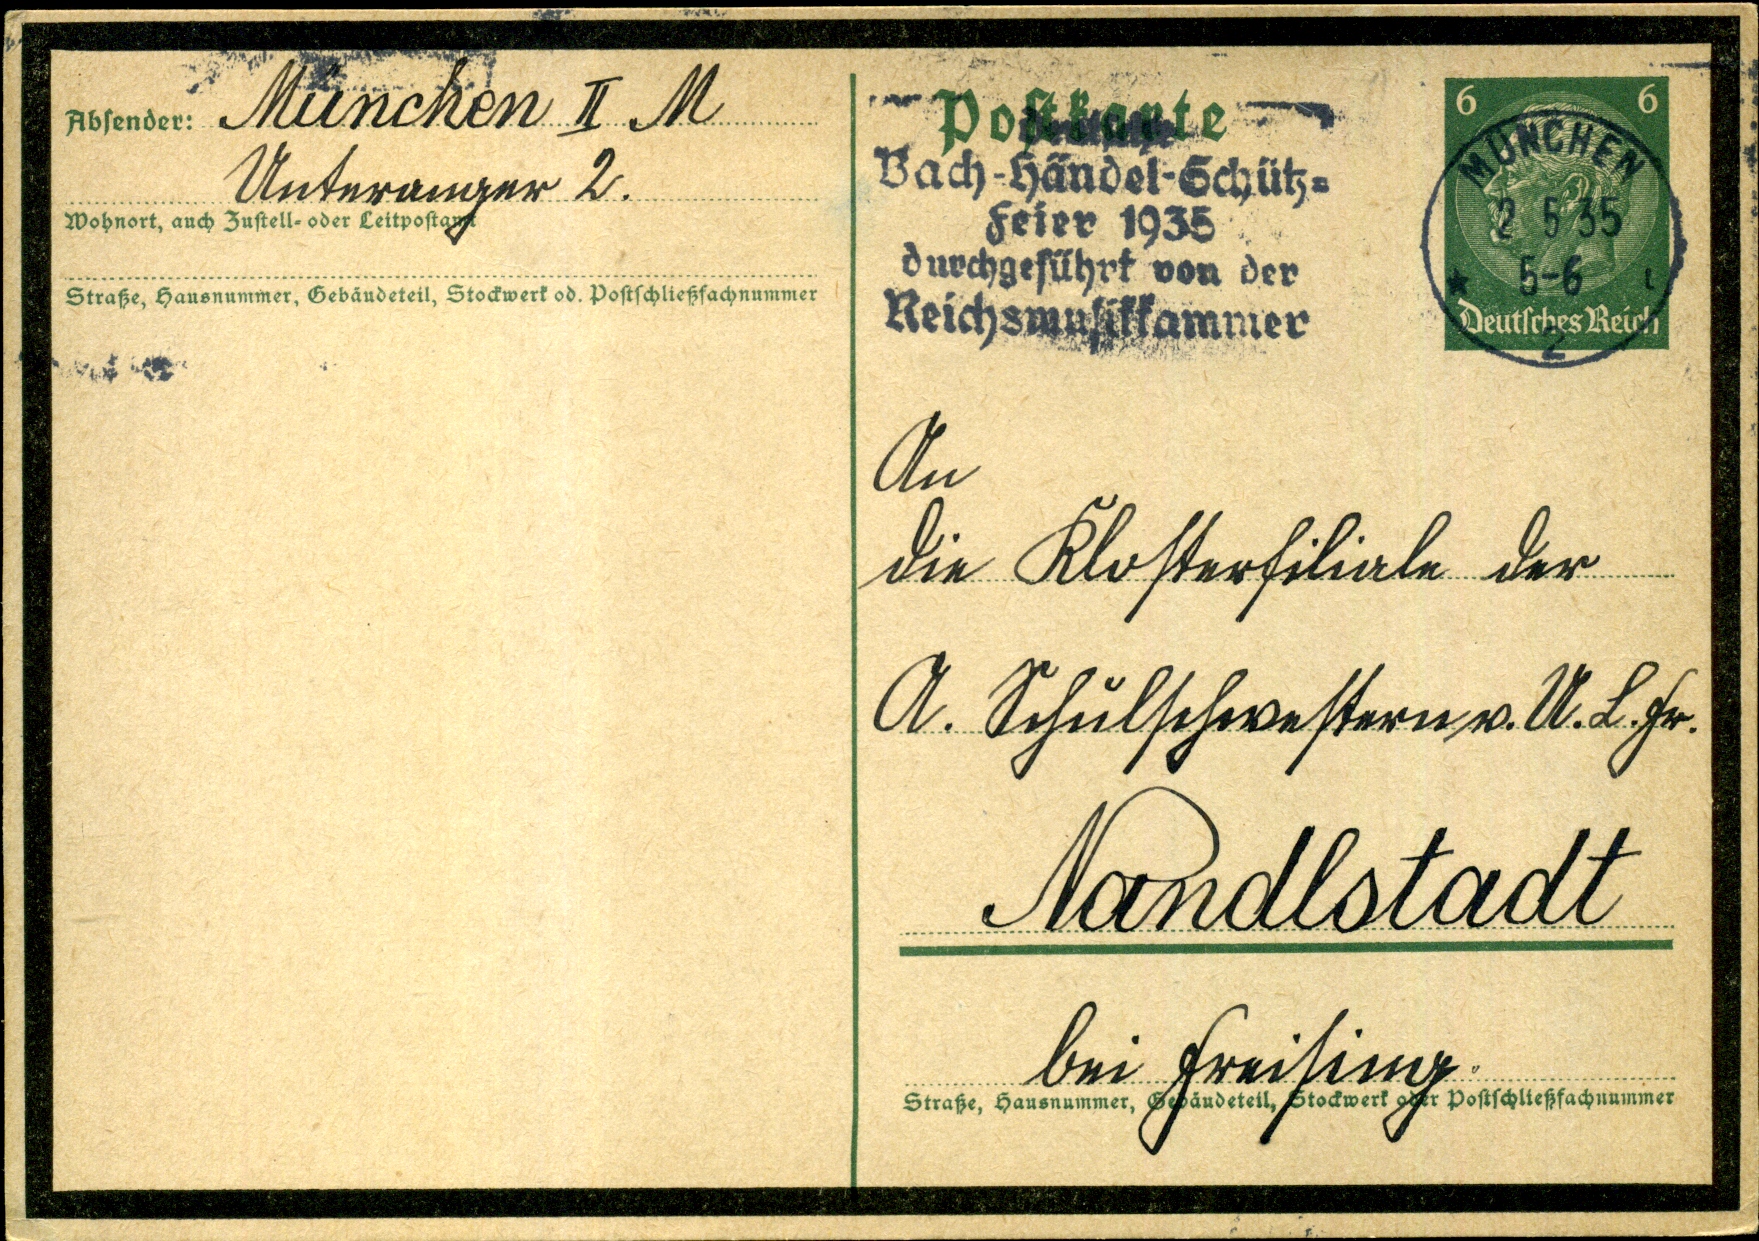 Absender: München II M
Unteranger 2.
Wohnort, auch Zustell- oder Leitpostamt
Straße, Hausnummer, Gebäudeteil, Stockwerk od. Postschließfachnummer
Postkarte
Bach-Händel-Schütz-
Feier 1935
durchgeführt von der
Reichsmusikkammer
6 6
MÜNCHEN
2 5 35
5-6
2
Deutsches Reich
An
die Klosterfiliale der
A. Schulschwestern v. U. L. Fr.
Nandlstadt
bei Freising.
Straße, Hausnummer, Gebäudeteil, Stockwerk oder Postschließfachnummer